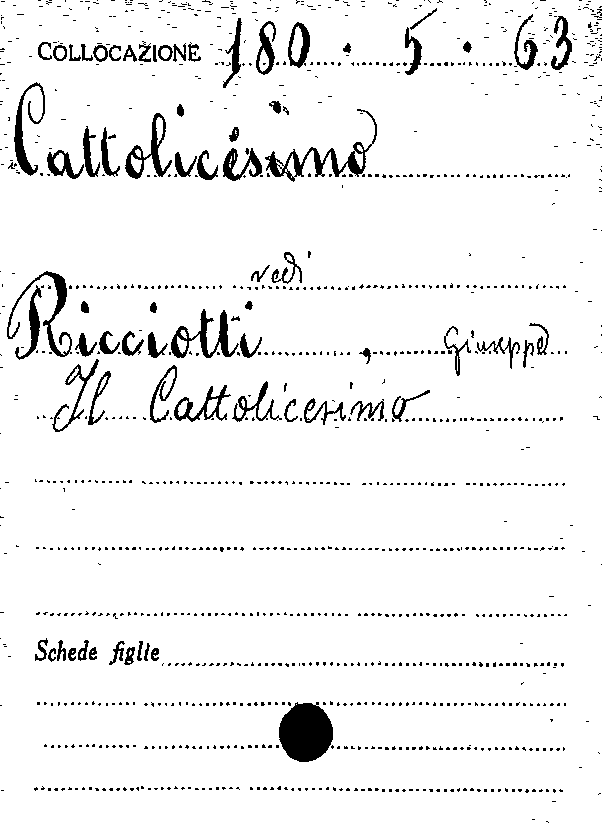 COLLOCAZIONE 180 . 5 . 63
Cattolicésimo
vedi
Ricciotti, Giuseppe
Il Cattolicesimo
Schede figlie